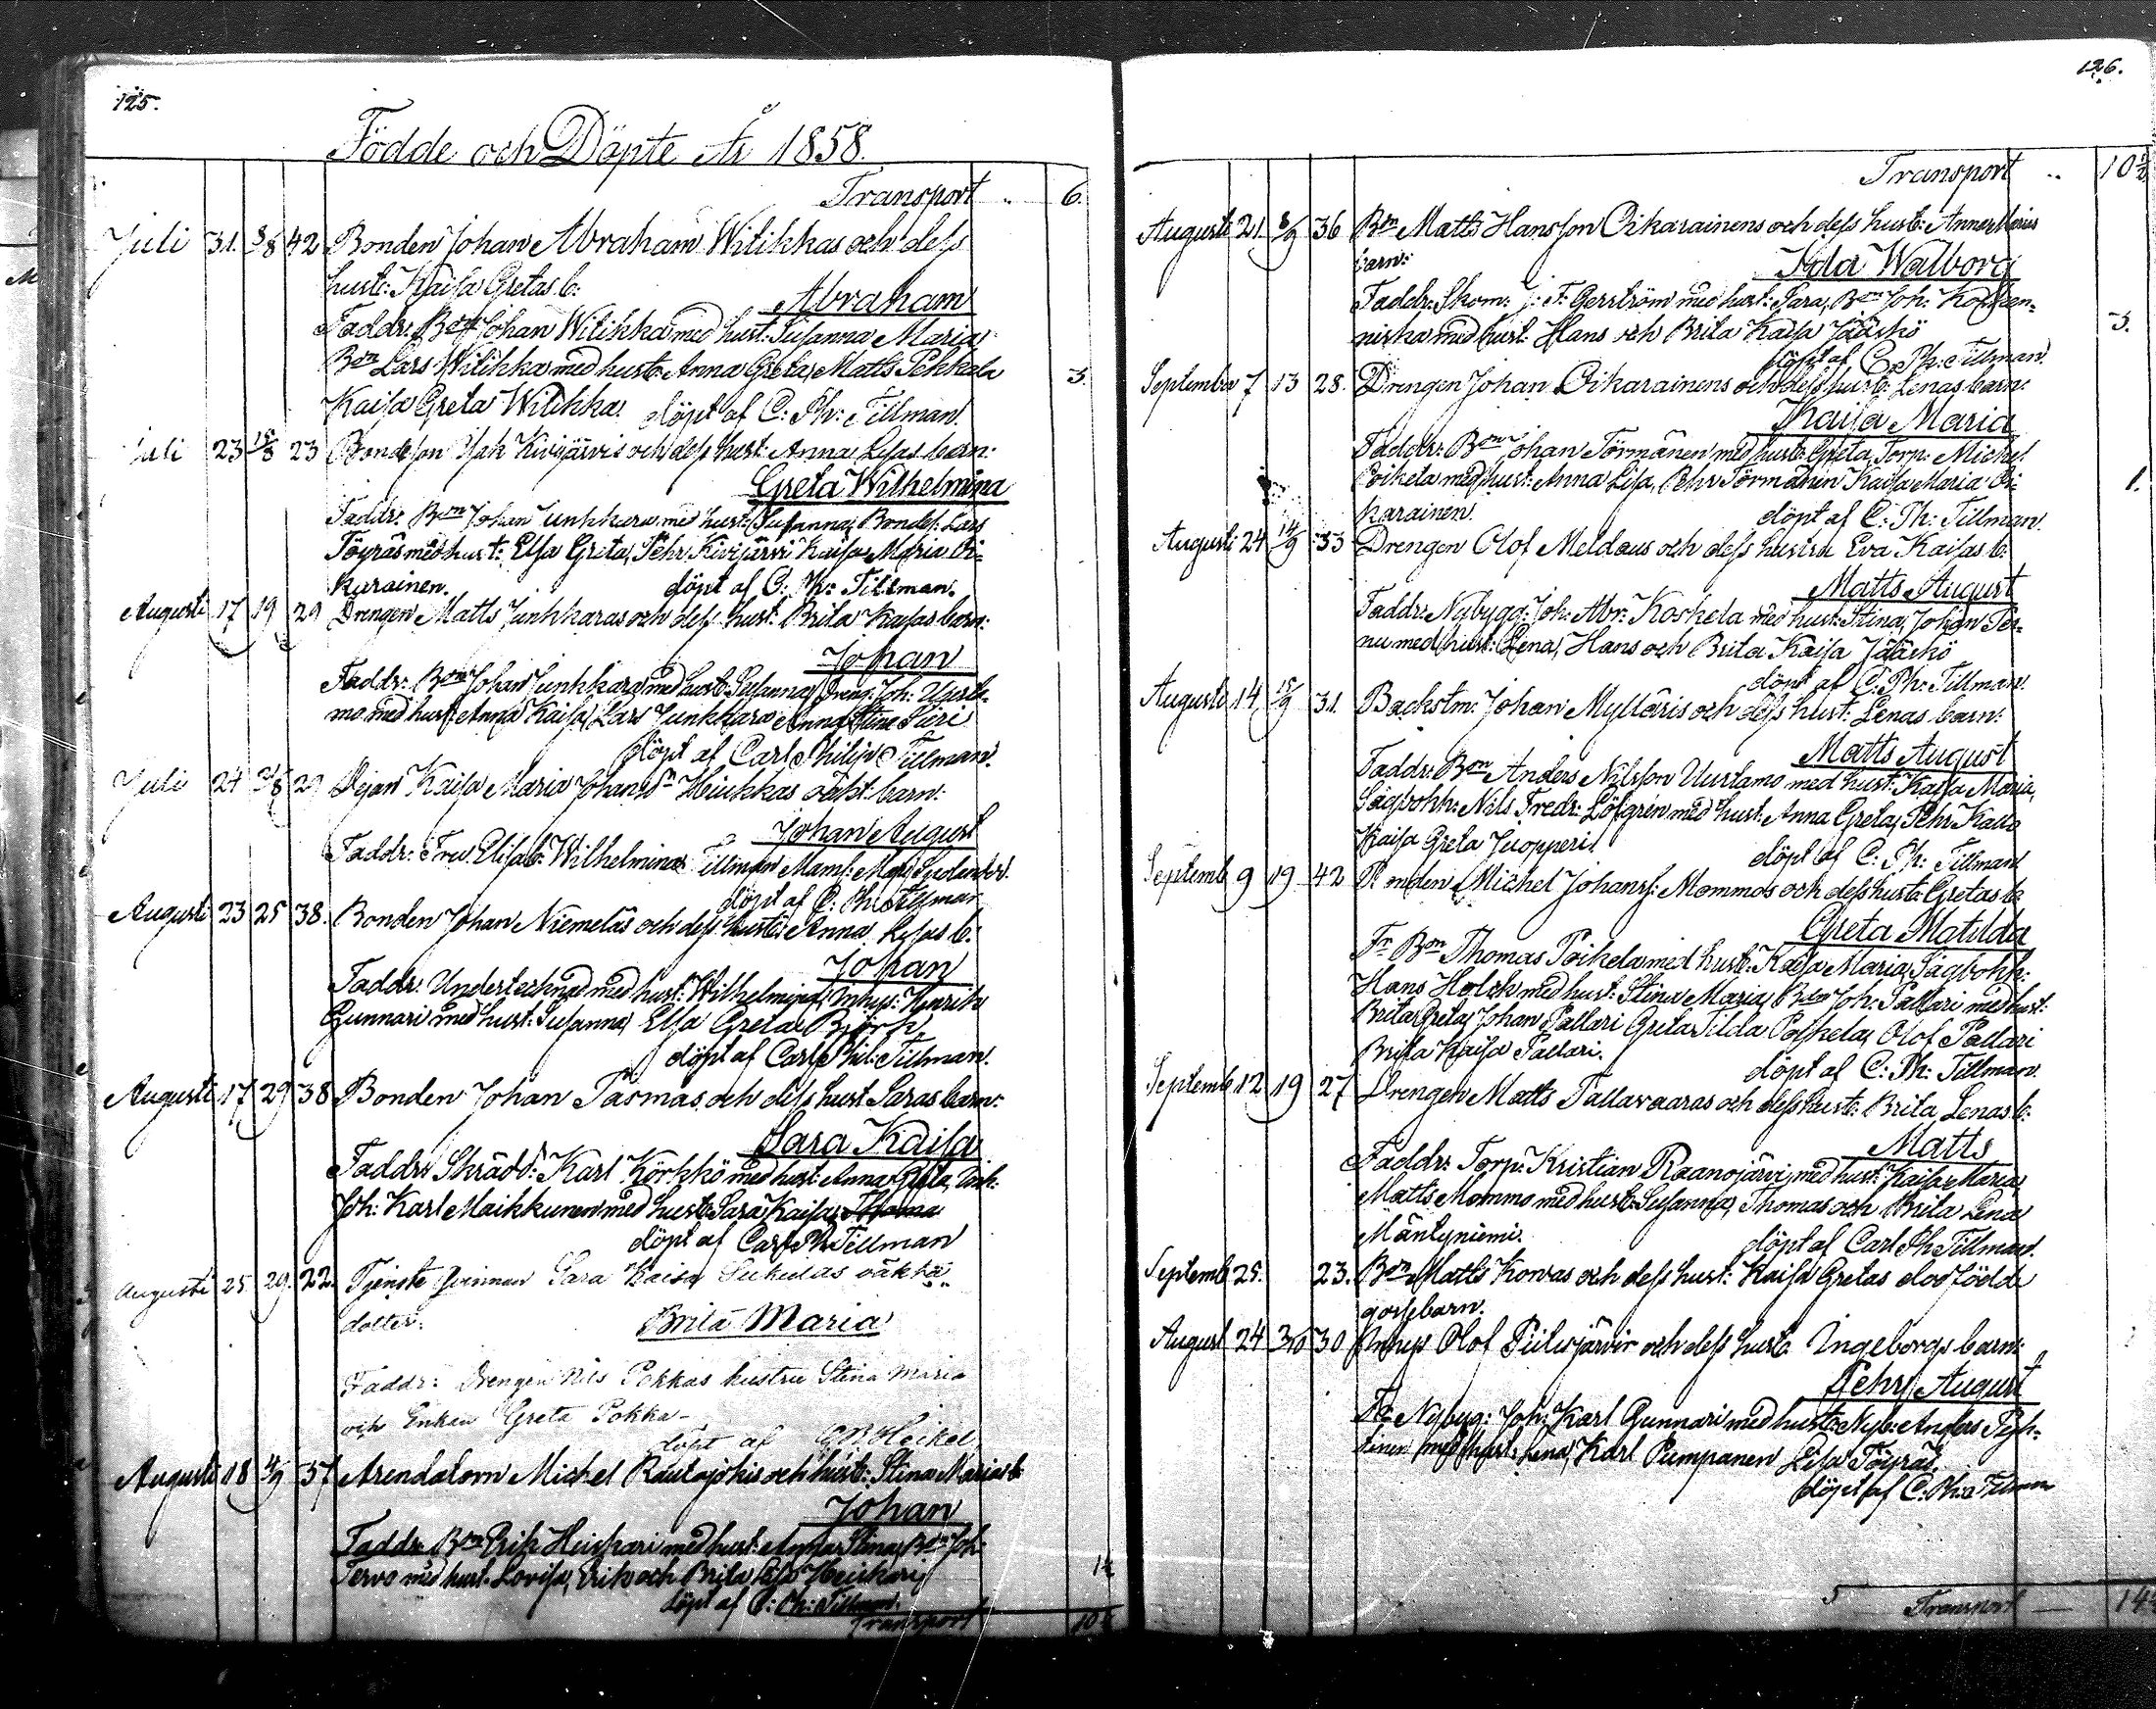 125.
Födde och Döpte År 1858.
Transport .. 6.
Juli 31. 8/8 42 Bonden Johan Abraham Wilikkas och dess
hust: Kaisa Gretas b:
Abraham
Faddr: Bon Johan Wilikka med hust: Susanna Maria,
Bon Lars Wilikka med hust: Anna Greta, Matts Pekkala
Kaisa Greta Wilikka. döpt af C: Ph: Tillman. 3.
Juli 23 15/8 23 Bondeson Isak Kivijärvis och dess hust: Anna Lisas barn:
Greta Wilhelmina
Faddr: Bon Johan Junkkara med hust: Susanna, Bondes: Lars
Töyräs med hust: Elsa Greta, Pehr Kivijärvi Kaisa Maria Oi-
karainen. döpt af C: Ph: Tillman.
Augusti 17 19 29 Drengen Matts Junkkaras och dess hust: Brita Kaisas barn:
Johan
Faddr: Bon Johan Junkkara med hust: Susanna, Dreng: Joh: Uusta-
mo med hust: Anna Kaisa, Lars Junkkara Anna Stina Piiri
döpt af Carl Philip Tillman.
Juli 24 21/8 29 Pejan Kaisa Maria Johansdr Hiukkas oäkt. barn:
Johan August
Faddr: Fru Elisab: Wilhelmina Tillman Mams:
döpt af C: Ph: Tillman
Augusti 23 25 38. Bonden Johan Niemeläs och dess hust: Anna Lisas b:
Johan
Faddr: Undertecknad med hust: Wilhelmina, Inhys: Henrik
Gunnari med hust: Susanna, Elsa Greta Björk,
döpt af Carl Phil: Tillman.
Augusti 17 29 38 Bonden Johan Pasmas och dess hust Saras barn:
Sara Kaisa
Faddr: Skrädd: Karl Körkkö med hust: Anna Greta,
Joh: Karl Maikkunen med hust: Sara Kaisa,
döpt af Carl Ph Tillman
Augusti 25. 29. 22. Tjenste qvinnan Sara Kaisa Sukulas oäkta
dotter. Brita Maria
Faddr: Drengen Nils Pokkas hustru Stina Maria
och Enkan Greta Pokka-
döpt af Heikel
Augusti 18 4/9 37 Arendatorn Michel Rautajokis och hust: Stina Marias b:
Johan
Faddr: Bon Erik Heiskari med hust: Anna Stina, Bon Joh:
Tervo med hust. Lovisa, Erik och Brita Lisa Heiskari 1½
döpt af C: Ph: Tillman.
Transport 10½
126.
Transport .. 10½
Augusti 21. 8/9 36 Bon Matts Hansson Oikarainens och dess hust: Anna Marias
barn: Ida Walborg
Faddr: Skom: J: F: Gerström med hust: Sara, Bon Joh: Kosken-
niska med hust: Hans och Brita Kaisa Jääskö 3.
döpt af C: Ph: Tillman.
September 7 13 28. Drengen Johan Oikarainens och dess hust: Lenas barn:
Kaisa Maria
Faddr: Bon Johan Törmänen med hust: Greta, Torp: Michel
Poikela med hust: Anna Lisa, Pehr Törmänen Kaisa Maria Oi- 1.
karainen. döpt af C: Ph: Tillman.
Augusti 24 14/9 33 Drengen Olof Meldaus och dess hustru Eva Kaisas b.
Matts August
Faddr: Nybygg: Joh: Abr: Koskela med hust: Stina, Johan Per-
nu med hust: Lena, Hans och Brita Kaisa Jääskö
döpt af C: Ph: Tillman.
Augusti 14 15/9 31. Backstm: Johan Mylläris och dess hust: Lenas barn:
Matts August
Faddr: Bon Anders Nilsson Uustamo med hust: Kaisa Maria,
Sågbokh: Nils Fredr: Löfgren med hust: Anna Greta, Pehr Kallo
Kaisa Greta Juopperi. döpt af C: Ph: Tillman
Septemb 9 19 42 Bonden Michel Johanss: Mommas och dess hust: Gretas b.
Greta Matilda
Fr Bon Thomas Poikela med hust: Kaisa Maria, Sågbokh:
Hans Holck med hust: Stina Maria, Bon Joh: Pallari med hust:
Brita Greta, Johan Pallari Greta Tilda Poikela, Olof Pallari
Brita Kaisa Pallari. döpt af C: Ph: Tillman.
Septemb 12 19 27 Drengen Matts Pallavaaras och dess hust: Brita Lenas b.
Matts
Faddr: Torp: Kristian Raanojärvi med hust: Kaisa Maria,
Matts Mommo med hust: Susanna, Thomas och Brita Lena
Mäntyniemi. döpt af Carl Ph Tillman.
Septemb 25. 23. Bon Matts Kowas och dess hust: Kaisa Gretas dödfödde
gossebarn.
August 24 3/10 30 Inhys Olof Piilisjärvis och dess hust: Ingeborgs barn:
Pehr August
Fr Nybyg: Joh: Karl Gunnari med hust: Nyb: Anders Pyh-
tinen med hust: Lena, Karl Pumpanen Lisa Töyräs.
döpt af C: Ph: Tillman
5 Transport — 14½